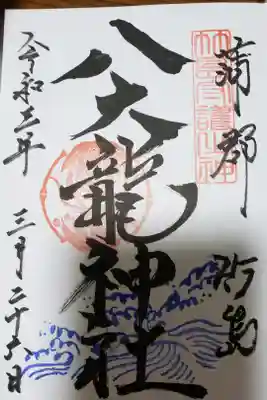 竹島守護神
蒲郡
竹島
八大龍神社
令和五年 三月二十六日